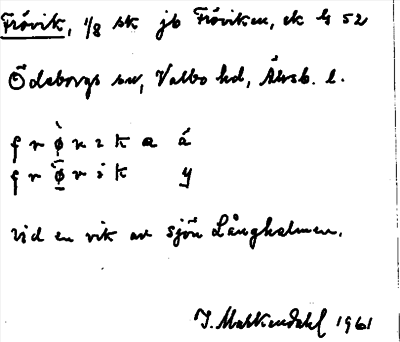 Frövik, 1/8 sk jb Fröviken, ek bl 52
Ödsborgs sn, Valbo hd, Älvsb. l.
f r ø̀ v i k a å
f r ø̀ v i k y
vid en vik av sjön Långhalmen.
I. Mattendahl 1961